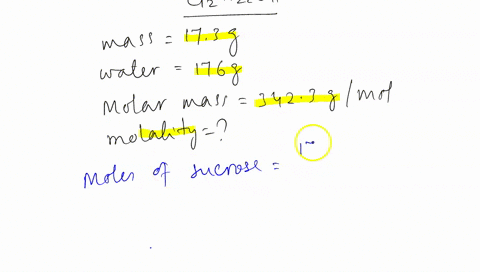 mass = 17.3 g
water = 176 g
Molar mass = 342.3 g/mol
molality = ?
Moles of sucrose =